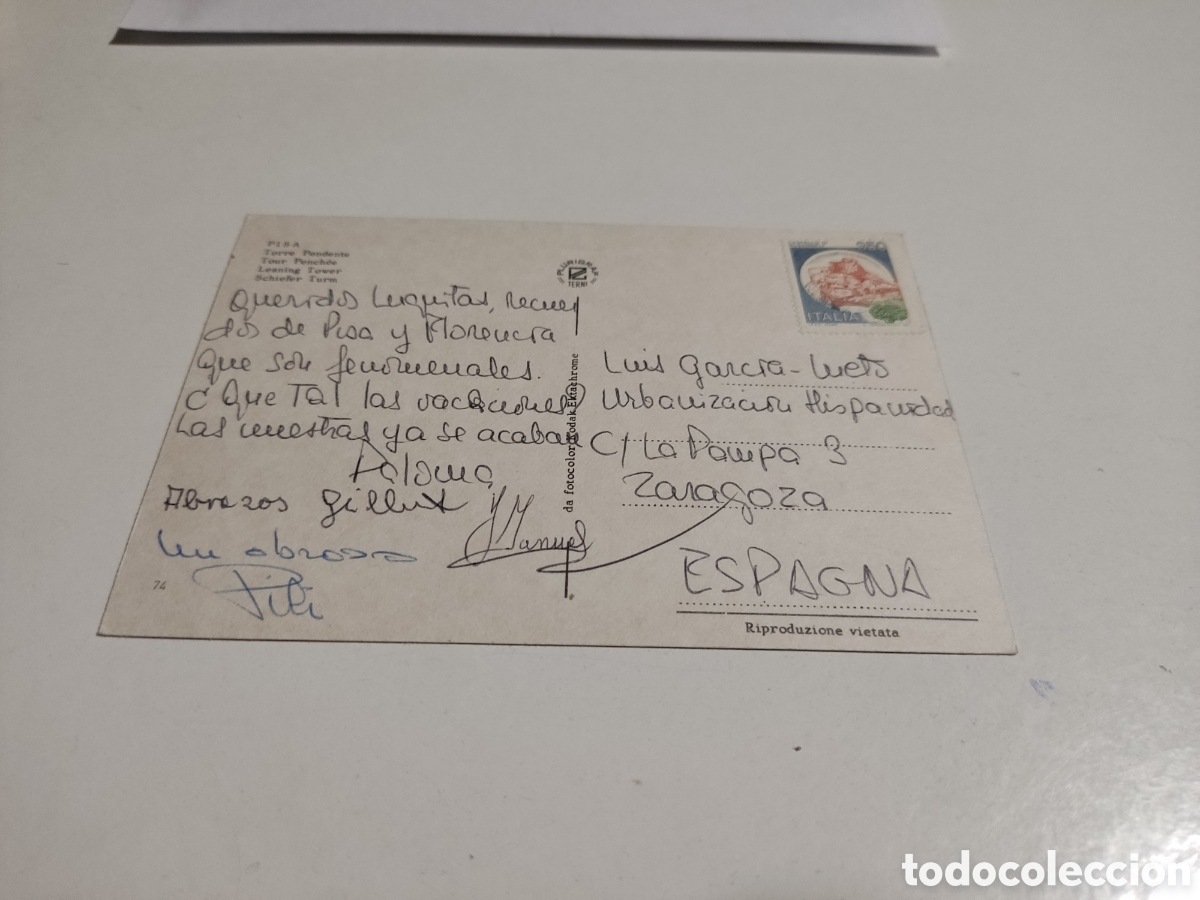 PISA
Torre Pendente
Tour Penchée
Leaning Tower
Schiefer Turm
Queridos Luquitas, recuer
dos de Pisa y Florencia
que son fenomenales.
¿Que Tal las vacaciones?
Las nuestras ya se acaban
Paloma
Abrazos
Manuel
Un abrazo
Pili
74
PLURIGRAF
TERNI
da fotocolor Kodak Ektachrome
350
ITALIA
Luis García-
Urbanización Hispanidad
C/ La Pampa 3
Zaragoza
ESPAGNA
Riproduzione vietata
todocoleccion